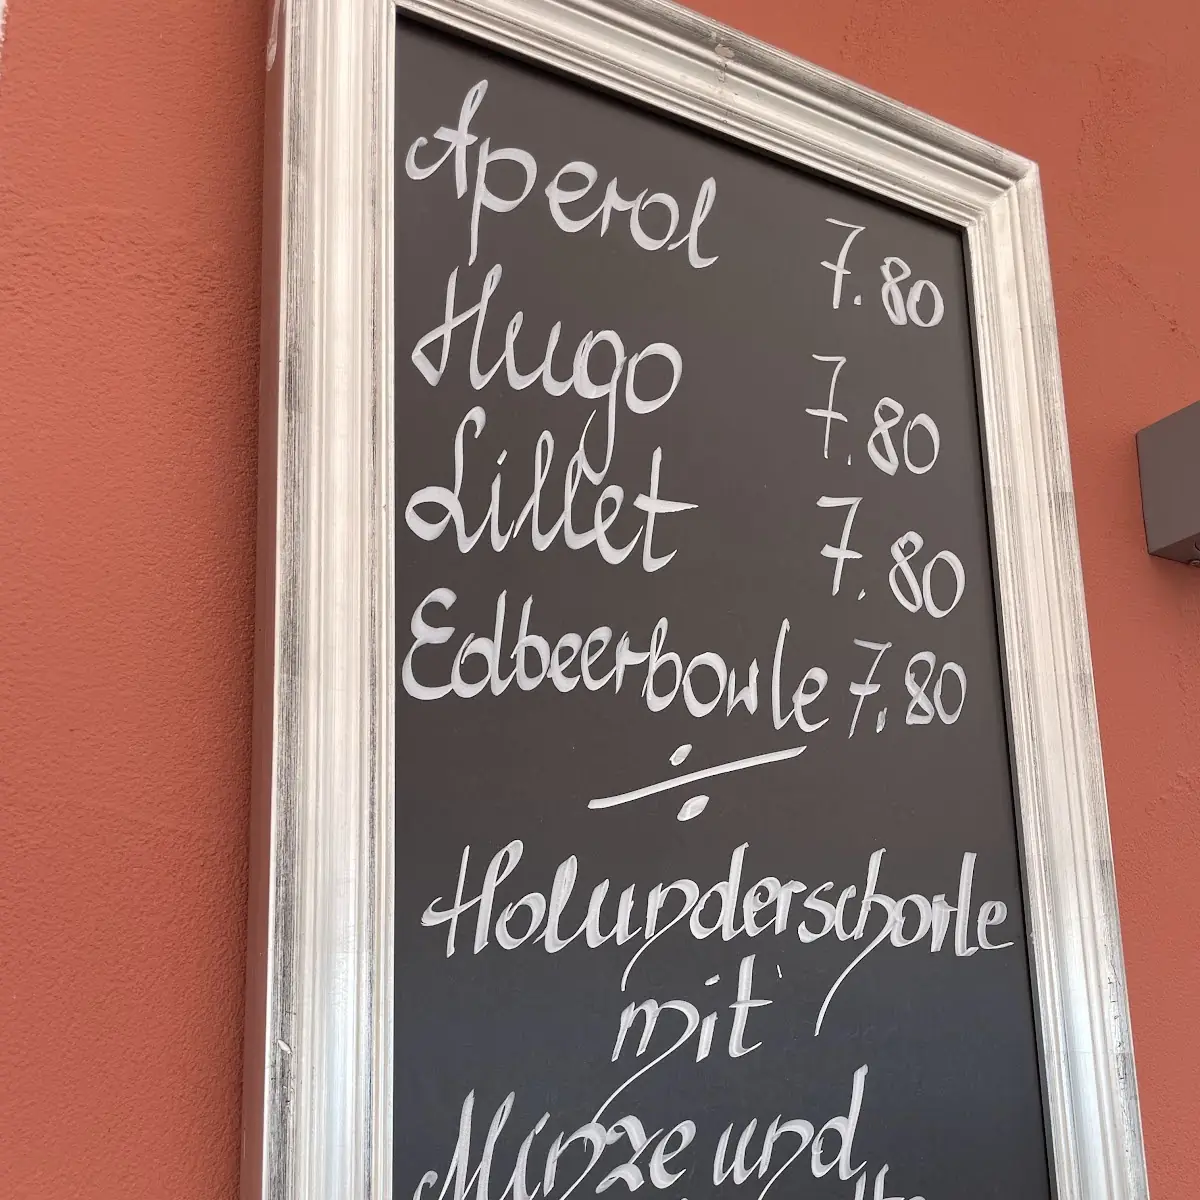 Aperol 7.80
Hugo 7.80
Lillet 7.80
Edbeerbowle 7.80
Holunderschorle
mit
Minze und